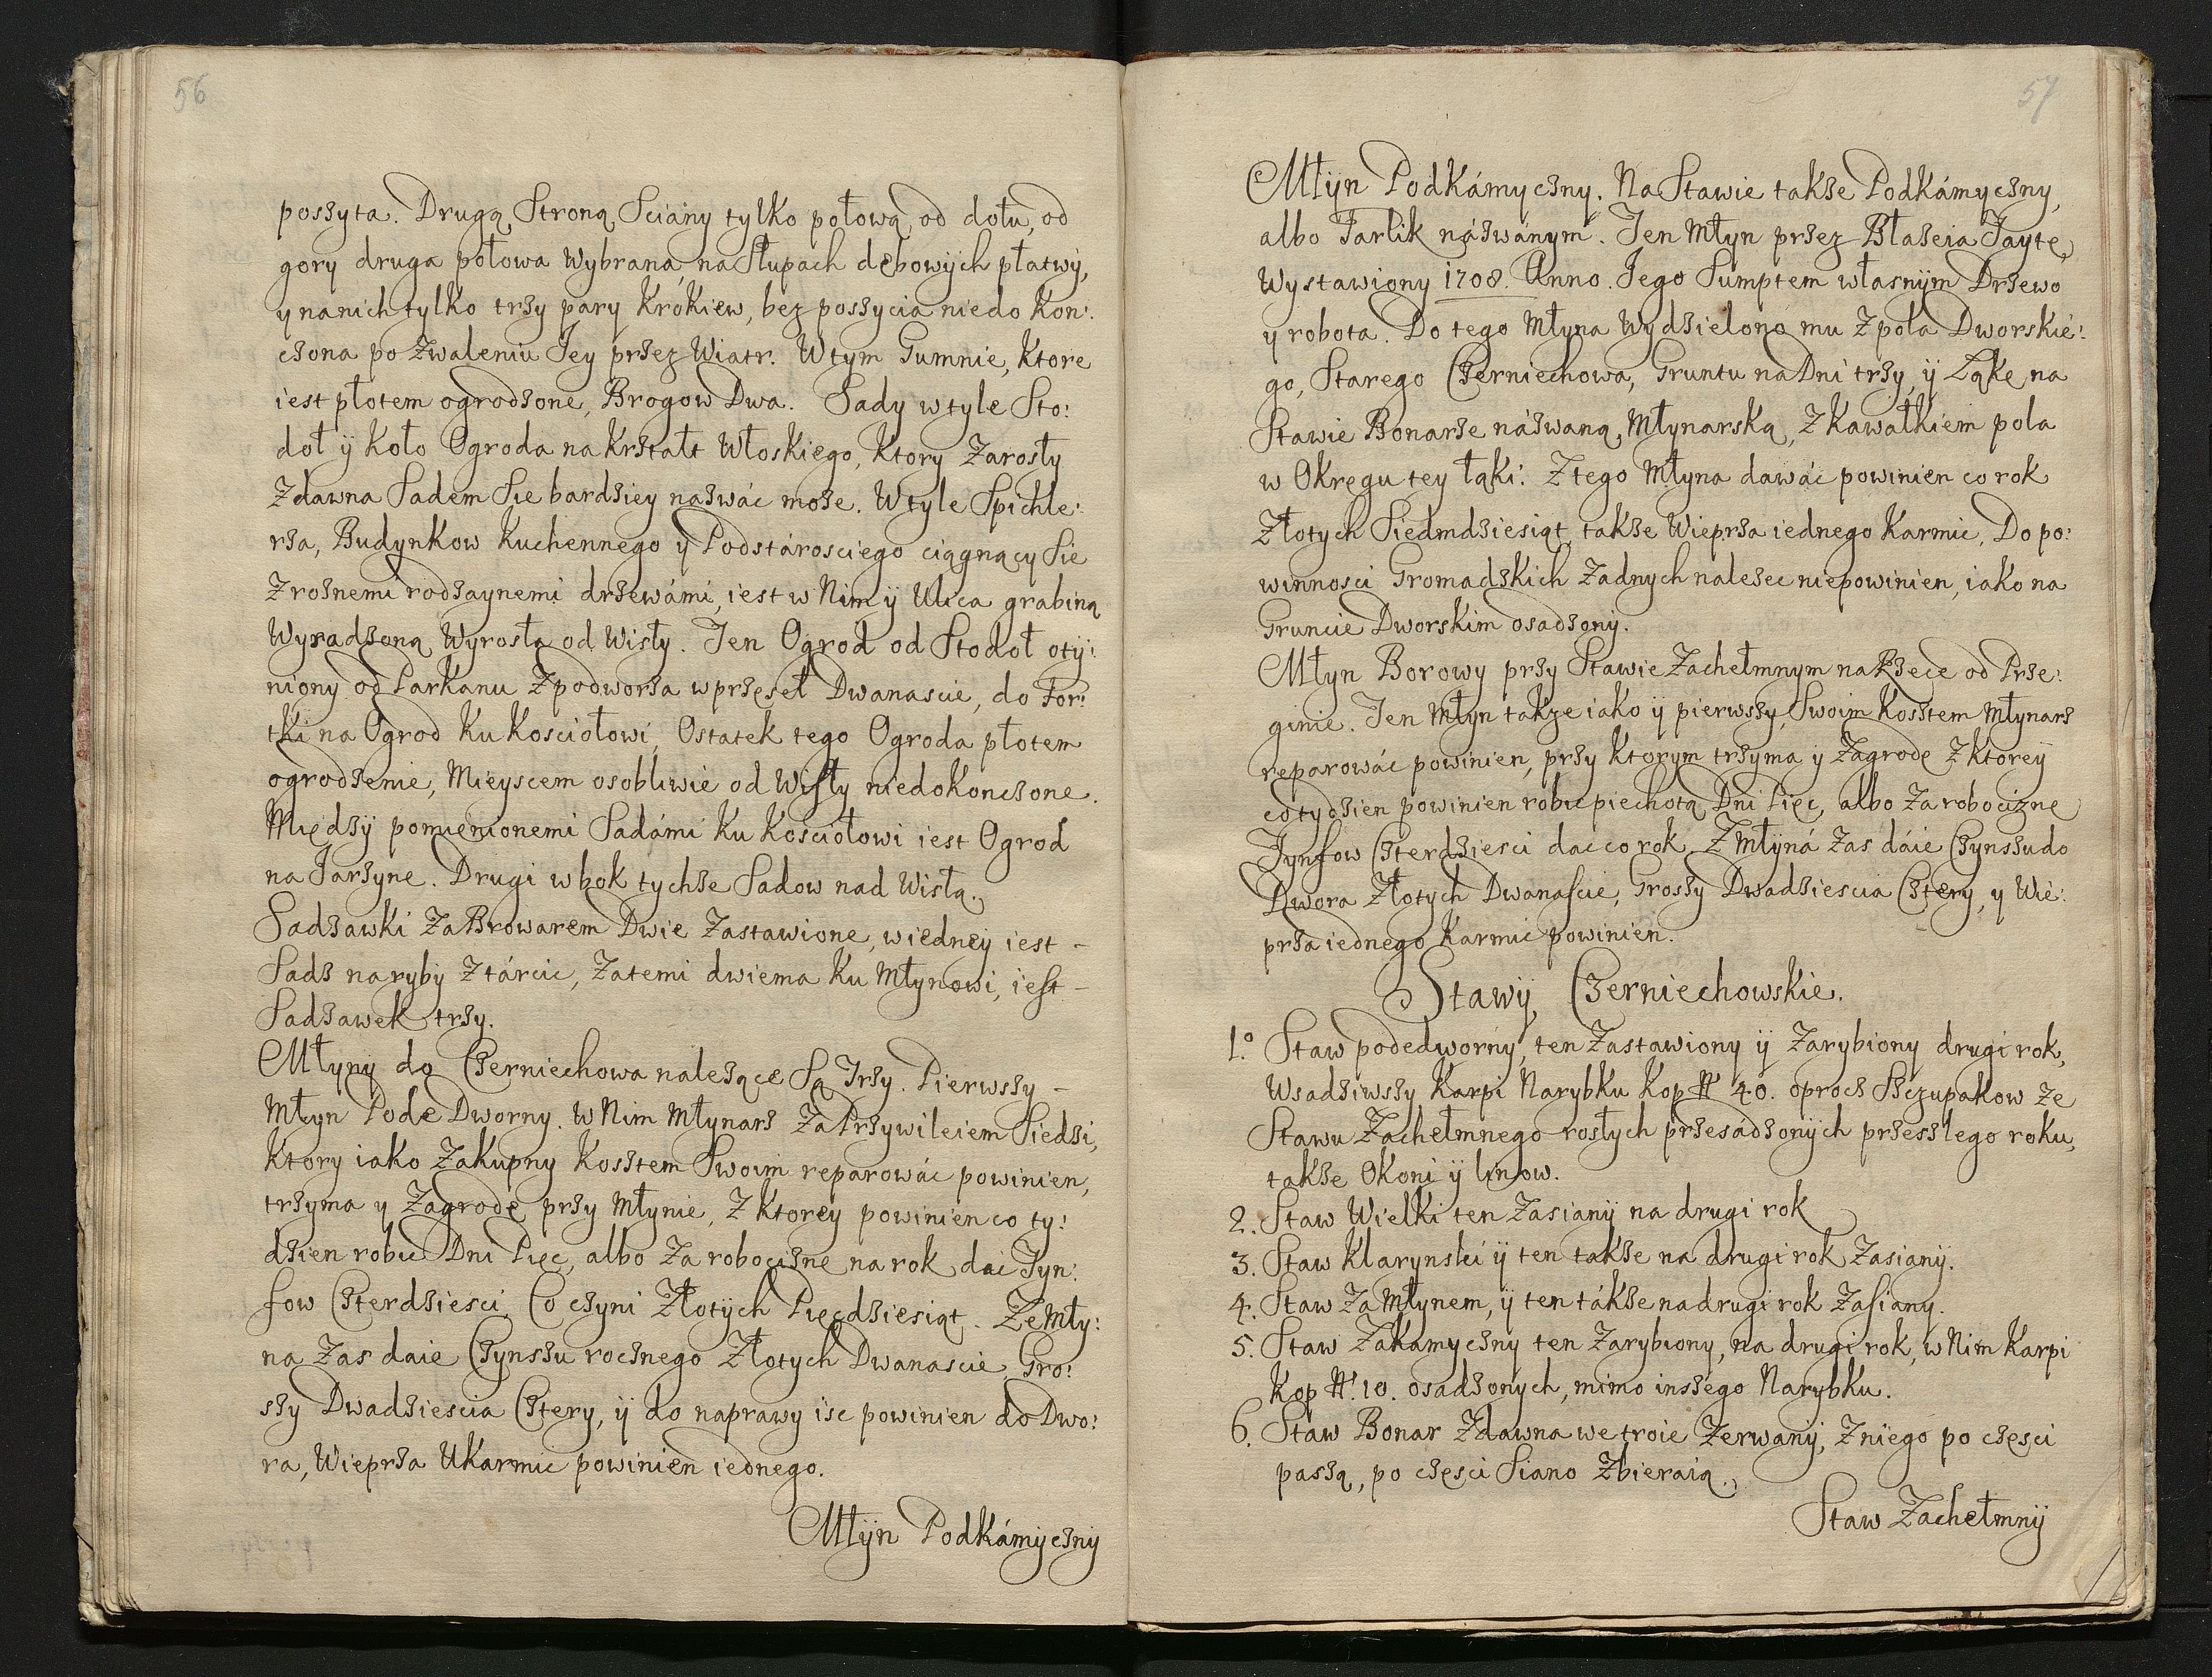 56
poszyta. Drugą Stroną Sciány tylko połową od dołu, od
gory druga połowa Wybrana, na Słupach dębowych płatwy,
y na nich tylko trzy pary Krokiew, bez poszycia niedo Kon:
czona po Zwaleniu Jey przez Wiatr. W tym Gumnie, Ktore
iest płotem ogrodzone, Brogow Dwa. Sady w tyle Sto:
doł ÿ Koło Ogroda na Krztałt Włoskiego, Ktory Zarosły
Zdawna Sadem Sie bardziey nazwác może. W tyle Spichle:
rza, Budynkow Kuchennego y Podstárosciego ciągnący Sie
Z rożnemi rodzaynemi drzewámi, iest w Nim ÿ Ulica grabiną
Wysadzoną Wyrosła od Wisły. Ten Ogrod od Stodoł otÿ:
niony od Parkanu Z podworza wprzęseł Dwanascie, do For:
tki na Ogrod Ku Kosciołowi, Ostatek tego Ogroda płotem
ogrodzenie, Mieyscem osobliwie od Wisły niedokonczone.
Międzÿ pomienionemi Sadámi Ku Kosciołowi iest Ogrod
na Jarzyne. Drugi w bok tychże Sadow nad Wisłą.
Sadzawki Za Browarem Dwie Zastawione, w iedney iest –
Sadz na ryby Z tárcic, Za temi dwiema Ku Młynowi, iest –
Sadzawek trzy.
Młyny do Czerniechowa należące Są Trzy. Pierwszy –
Młyn Pode Dworny. W Nim Młynarz Za Przywileiem Siedzi,
Ktory iako Zakupny Kosztem Swoim reparowác powinien,
trzyma y Zagrodę przy Młynie, Z Ktorey powinien co ty:
dzien robic Dni Pięc, albo Za robociznę na rok dac Tyn:
fow Czterdziesci, Co czyni Złotÿch Pięcdziesiąt. Ze Mły:
na Zas daie Czynszu rocznego Złotych Dwanascie, Gro:
szy Dwadziescia Cztery, ÿ do naprawy isc powinien do Dwo:
ra, Wieprza Ukarmic powinien iednego.
Młÿn Podkámyczny
57
Młÿn Podkámyczny. Na Stawie takze Podkámyczny,
albo Tarlik názwánym. Ten Młyn przez Błażeia Jaytę
Wystawiony 1708. Anno. Jego Sumptem własnÿm Drzewo
y robota. Do tego Młyna Wydzielono mu Z pola Dworskie:
go, Starego Czerniechowa, Gruntu na Dni trzy, ÿ Ląkę na
Stawie Bonarze názwaną, Młynarską, Z Kawałkiem pola
w Okręgu tey łąki. Z tego Młyna dawác powinien co rok
Złotych Siedmdziesiąt, takze Wieprza iednego Karmic. Do po:
winnosci Gromadzkich Zadnych należec niepowinien, iako na
Gruncie Dworskim osadzonÿ.
Młyn Borowy przy Stawie Zachełmnym na Rzece od Prze:
ginie. Ten Młyn takze iako ÿ pierwszy, Swoim Kosztem Młynarz
reparowác powinien, przy Ktorym trzyma y Zagrodę Z Ktorey
co tydzien powinien robic piechotą Dni Pięc, albo Za robociznę
Tynfow Czterdziesci dac co rok. Z Młyná Zas dáie Czynszu do
Dwora Złotych Dwanascie, Groszy Dwadziescia Cztery, y Wie:
prza iednego Karmic powinien.
Stawÿ Czerniechowskie.
1.º Staw podedworny, ten Zastawiony ÿ Zarybiony drugi rok,
Wsadziwszy Karpi Narybku Kop Nº 40. oprocz Szczupakow Ze
Stawu Zachełmnego rosłych przesadzonÿch przeszłego roku,
takze Okoni ÿ linow.
2. Staw Wielki ten Zasianÿ na drugi rok
3. Staw Klarynski ÿ ten takze na drugi rok Zasianÿ.
4. Staw Za Młynem, ÿ ten tákze na drugi rok Zasiany.
5. Staw Zakamyczny ten Zarybiony, na drugi rok, w Nim Karpi
Kop Nº 10. osadzonych, mimo inszego Narybku.
6. Staw Bonar Zdawna we troie Zerwanÿ, Z niego po częsci
paszą, po częsci Siano Zbieraią.
Staw Zachełmnÿ